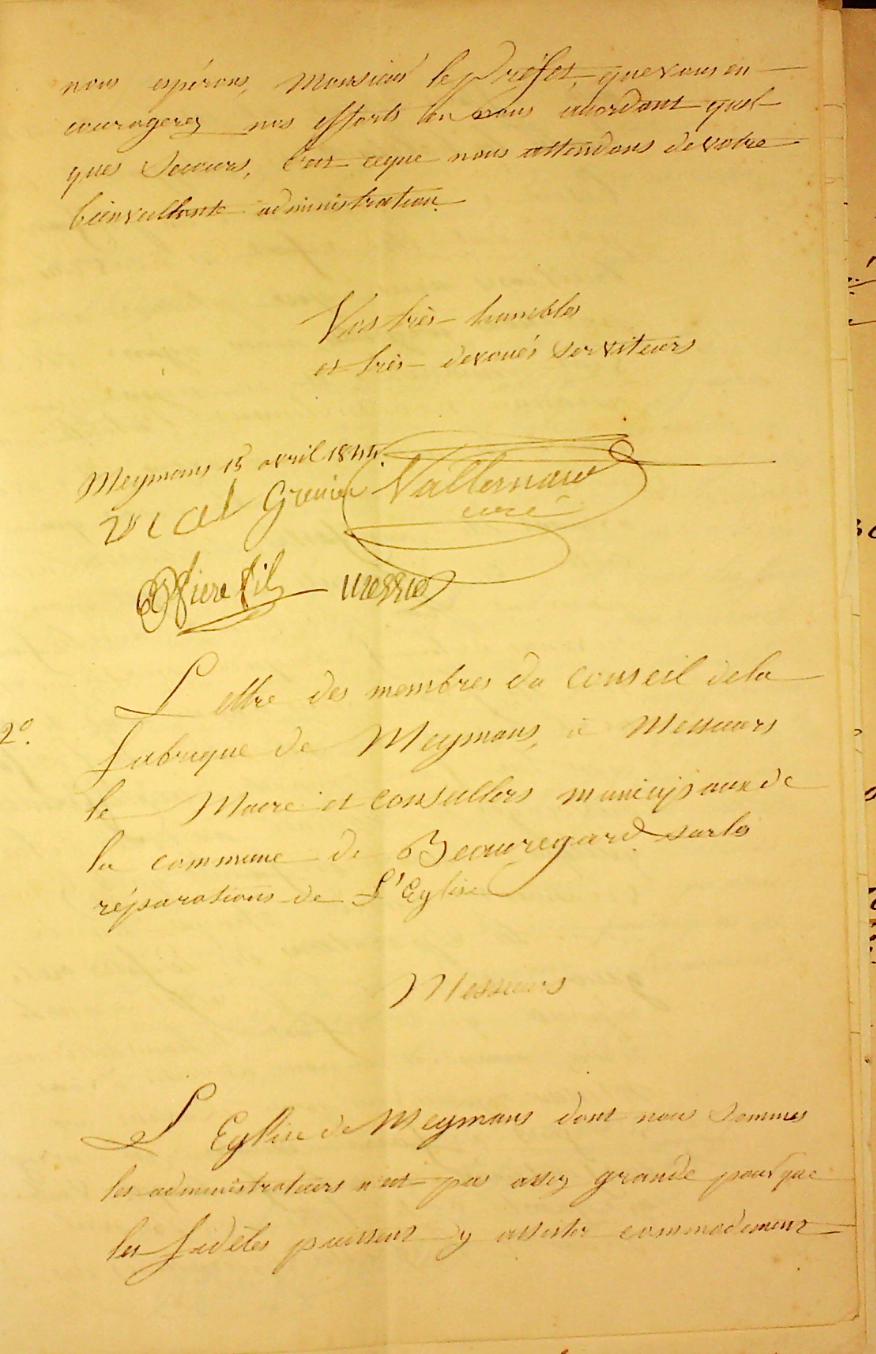 nous espérons, Monsieur le Préfet, que vous en-
couragerez nos efforts en nous accordant quel-
ques secours, C'est ce que nous attendons de votre
bienveillante administration.
Vos très-humbles
et très-devoués serviteurs
Meymans 15 avril 1844.
Grenier Vallernaud
curé
fils Messie
2º. Lettre des membres du Conseil de la
fabrique de Meymans, à Messieurs
le Maire et conseillers municipaux de
la commune de Beauregard sur les
réparations de L'Eglise
Messieurs
L'Eglise de Meymans dont nous sommes
les administrateurs n'est pas assez grande pour que
les fidèles puissent y assister commodément